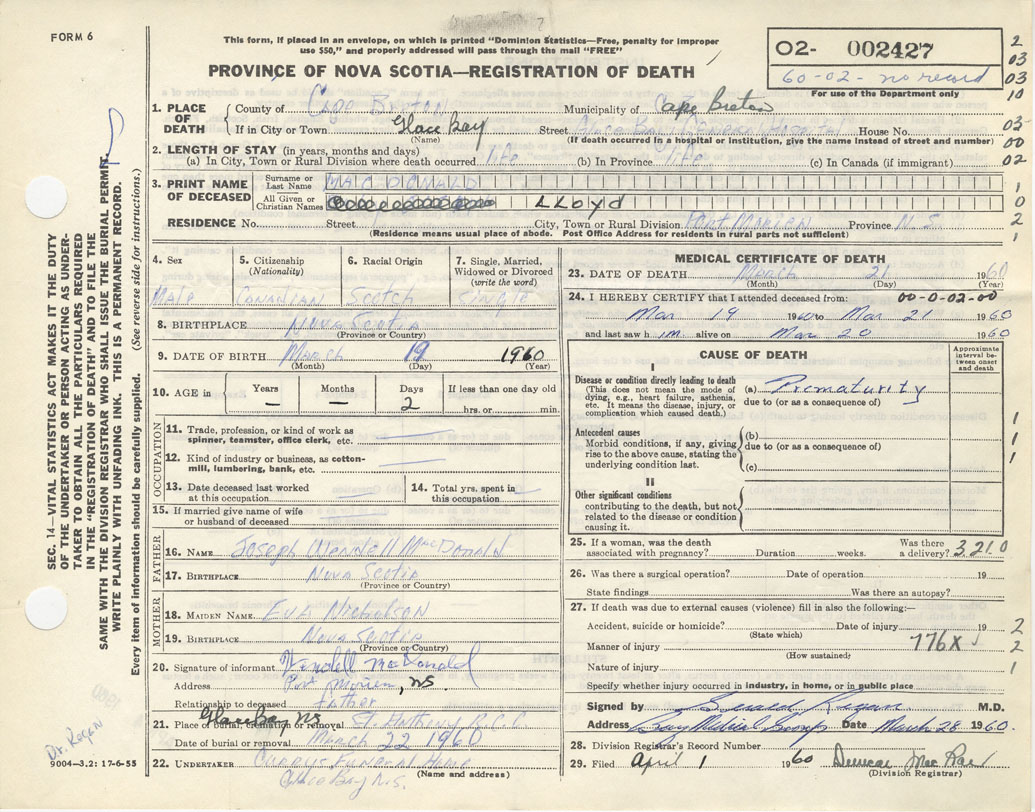 FORM 6
This form, if placed in an envelope, on which is printed "Dominion Statistics—Free, penalty for improper
use $50," and properly addressed will pass through the mail "FREE"
PROVINCE OF NOVA SCOTIA—REGISTRATION OF DEATH
02- 002427
60-02- no record
For use of the Department only
2
03
03
10
03
00
02
1
0
2
1
1. PLACE OF DEATH County of Cape Breton Municipality of Cape Breton
If in City or Town Glace Bay Street Glace Bay General Hospital House No.
(Name) (If death occurred in a hospital or institution, give the name instead of street and number)
2. LENGTH OF STAY (in years, months and days)
(a) In City, Town or Rural Division where death occurred Life (b) In Province Life (c) In Canada (if immigrant)
3. PRINT NAME OF DECEASED Surname or Last Name MAC DONALD
All Given or Christian Names LLoyd
RESIDENCE No. Street City, Town or Rural Division Port Morien Province N.S.
(Residence means usual place of abode. Post Office Address for residents in rural parts not sufficient)
4. Sex Male
5. Citizenship (Nationality) Canadian
6. Racial Origin Scotch
7. Single, Married, Widowed or Divorced (write the word) Single
8. BIRTHPLACE Nova Scotia
(Province or Country)
9. DATE OF BIRTH March 19 1960
(Month) (Day) (Year)
10. AGE in Years — Months — Days 2 If less than one day old hrs. or min.
OCCUPATION
11. Trade, profession, or kind of work as spinner, teamster, office clerk, etc.
12. Kind of industry or business, as cotton-mill, lumbering, bank, etc.
13. Date deceased last worked at this occupation
14. Total yrs. spent in this occupation
15. If married give name of wife or husband of deceased
FATHER
16. NAME Joseph Wendell MacDonald
17. BIRTHPLACE Nova Scotia
(Province or Country)
MOTHER
18. MAIDEN NAME Eva Nicholson
19. BIRTHPLACE Nova Scotia
(Province or Country)
20. Signature of informant Wendell MacDonald
Address Port Morien, N.S.
Relationship to deceased father
21. Place of burial, cremation or removal Glace Bay NS St Anthony R.C.C
Date of burial or removal March 22 1960
22. UNDERTAKER Currys Funeral Home
(Name and address)
Glace Bay N.S.
MEDICAL CERTIFICATE OF DEATH
23. DATE OF DEATH March 21 1960
(Month) (Day) (Year)
24. I HEREBY CERTIFY that I attended deceased from: 00-0-02-00
Mar 19 1960 to Mar 21 1960
and last saw h im alive on Mar 20 1960
CAUSE OF DEATH
Approximate interval between onset and death
I
Disease or condition directly leading to death
(This does not mean the mode of dying, e.g., heart failure, asthenia, etc. It means the disease, injury, or complication which caused death.)
(a) Prematurity
due to (or as a consequence of)
Antecedent causes
Morbid conditions, if any, giving rise to the above cause, stating the underlying condition last.
(b)
due to (or as a consequence of)
(c)
1
1
1
II
Other significant conditions
contributing to the death, but not related to the disease or condition causing it.
25. If a woman, was the death associated with pregnancy? Duration weeks. Was there a delivery? 3210
26. Was there a surgical operation? Date of operation 19
State findings Was there an autopsy?
27. If death was due to external causes (violence) fill in also the following:—
Accident, suicide or homicide? Date of injury 19 2
(State which)
Manner of injury 776X 2
(How sustained)
Nature of injury 1
Specify whether injury occurred in industry, in home, or in public place
Signed by Gerald Regan M.D.
Address Bay Medical Group Date March 28 1960.
28. Division Registrar's Record Number
29. Filed April 1 1960 Duncan MacRae
(Division Registrar)
SEC. 14—VITAL STATISTICS ACT MAKES IT THE DUTY
OF THE UNDERTAKER OR PERSON ACTING AS UNDER-
TAKER TO OBTAIN ALL THE PARTICULARS REQUIRED
IN THE "REGISTRATION OF DEATH" AND TO FILE THE
SAME WITH THE DIVISION REGISTRAR WHO SHALL ISSUE THE BURIAL PERMIT.
WRITE PLAINLY WITH UNFADING INK. THIS IS A PERMANENT RECORD.
Every item of information should be carefully supplied. (See reverse side for instructions.)
Dr. Regan
9004—3.2: 17-6-55